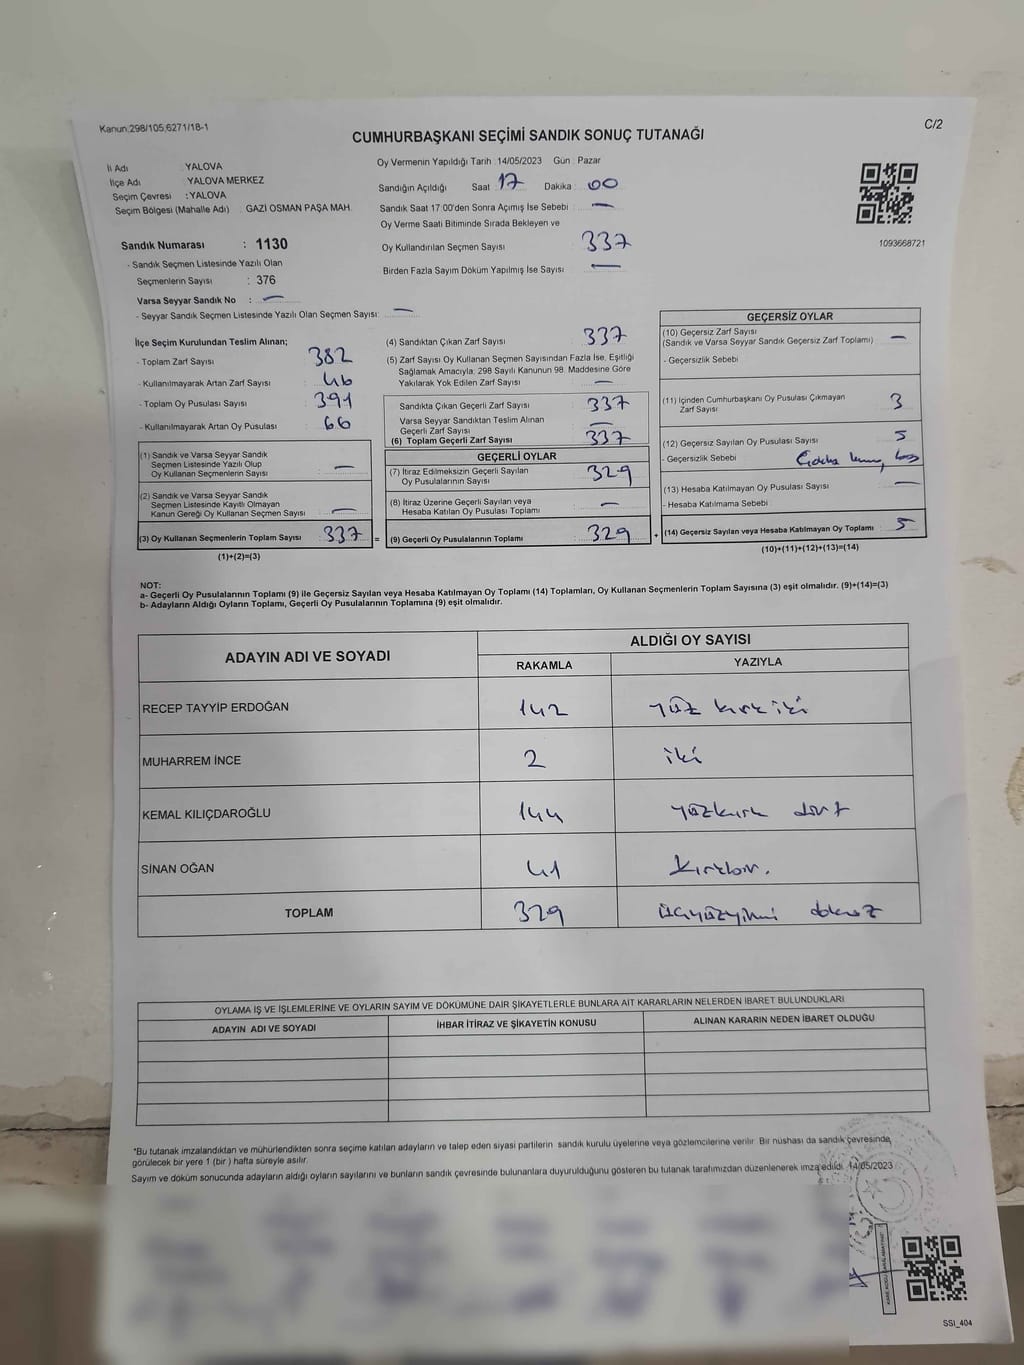 Kanun;298/105;6271/18-1
C/2
CUMHURBAŞKANI SEÇİMİ SANDIK SONUÇ TUTANAĞI
İl Adı YALOVA
İlçe Adı : YALOVA MERKEZ
Seçim Çevresi : YALOVA
Seçim Bölgesi (Mahalle Adı) : GAZİ OSMAN PAŞA MAH.
Sandık Numarası : 1130
- Sandık Seçmen Listesinde Yazılı Olan
Seçmenlerin Sayısı : 376
Varsa Seyyar Sandık No : —
- Seyyar Sandık Seçmen Listesinde Yazılı Olan Seçmen Sayısı: —
Oy Vermenin Yapıldığı Tarih : 14/05/2023 Gün : Pazar
Sandığın Açıldığı Saat : 17 Dakika : 00
Sandık Saat 17:00'den Sonra Açımış İse Sebebi : —
Oy Verme Saati Bitiminde Sırada Bekleyen ve
Oy Kullandırılan Seçmen Sayısı 337
Birden Fazla Sayım Döküm Yapılmış İse Sayısı : —
1093668721
İlçe Seçim Kurulundan Teslim Alınan;
- Toplam Zarf Sayısı 382
- Kullanılmayarak Artan Zarf Sayısı : 46
- Toplam Oy Pusulası Sayısı : 391
- Kullanılmayarak Artan Oy Pusulası : 66
(1) Sandık ve Varsa Seyyar Sandık
Seçmen Listesinde Yazılı Olup
Oy Kullanan Seçmenlerin Sayısı : —
(2) Sandık ve Varsa Seyyar Sandık
Seçmen Listesinde Kayıtlı Olmayan
Kanun Gereği Oy Kullanan Seçmen Sayısı : —
(3) Oy Kullanan Seçmenlerin Toplam Sayısı : 337
(1)+(2)=(3)
(4) Sandıktan Çıkan Zarf Sayısı : 337
(5) Zarf Sayısı Oy Kullanan Seçmen Sayısından Fazla İse, Eşitliği
Sağlamak Amacıyla, 298 Sayılı Kanunun 98. Maddesine Göre
Yakılarak Yok Edilen Zarf Sayısı : —
Sandıkta Çıkan Geçerli Zarf Sayısı : 337
Varsa Seyyar Sandıktan Teslim Alınan
Geçerli Zarf Sayısı : —
(6) Toplam Geçerli Zarf Sayısı : 337
GEÇERLİ OYLAR
(7) İtiraz Edilmeksizin Geçerli Sayılan
Oy Pusulalarının Sayısı : 329
(8) İtiraz Üzerine Geçerli Sayılan veya
Hesaba Katılan Oy Pusulası Toplamı : —
= (9) Geçerli Oy Pusulalarının Toplamı : 329
GEÇERSİZ OYLAR
(10) Geçersiz Zarf Sayısı
(Sandık ve Varsa Seyyar Sandık Geçersiz Zarf Toplamı) : —
- Geçersizlik Sebebi
(11) İçinden Cumhurbaşkanı Oy Pusulası Çıkmayan
Zarf Sayısı : 3
(12) Geçersiz Sayılan Oy Pusulası Sayısı : 5
- Geçersizlik Sebebi
(13) Hesaba Katılmayan Oy Pusulası Sayısı : —
- Hesaba Katılmama Sebebi
+ (14) Geçersiz Sayılan veya Hesaba Katılmayan Oy Toplamı : 5
(10)+(11)+(12)+(13)=(14)
NOT:
a- Geçerli Oy Pusulalarının Toplamı (9) ile Geçersiz Sayılan veya Hesaba Katılmayan Oy Toplamı (14) Toplamları, Oy Kullanan Seçmenlerin Toplam Sayısına (3) eşit olmalıdır. (9)+(14)=(3)
b- Adayların Aldığı Oyların Toplamı, Geçerli Oy Pusulalarının Toplamına (9) eşit olmalıdır.
ADAYIN ADI VE SOYADI ALDIĞI OY SAYISI
RAKAMLA YAZIYLA
RECEP TAYYİP ERDOĞAN 142 yüz kırk iki
MUHARREM İNCE 2 iki
KEMAL KILIÇDAROĞLU 144 yüzkırk dört
SİNAN OĞAN 41 kırkbir.
TOPLAM 329 üçyüzyirmi dokuz
OYLAMA İŞ VE İŞLEMLERİNE VE OYLARIN SAYIM VE DÖKÜMÜNE DAİR ŞİKAYETLERLE BUNLARA AİT KARARLARIN NELERDEN İBARET BULUNDUKLARI
ADAYIN ADI VE SOYADI İHBAR İTİRAZ VE ŞİKAYETİN KONUSU ALINAN KARARIN NEDEN İBARET OLDUĞU
*Bu tutanak imzalandıktan ve mühürlendikten sonra seçime katılan adayların ve talep eden siyasi partilerin sandık kurulu üyelerine veya gözlemcilerine verilir. Bir nüshası da sandık çevresinde,
görülecek bir yere 1 (bir ) hafta süreyle asılır.
Sayım ve döküm sonucunda adayların aldığı oyların sayılarını ve bunların sandık çevresinde bulunanlara duyurulduğunu gösteren bu tutanak tarafımızdan düzenlenerek imza edildi. 14/05/2023
SSI_404